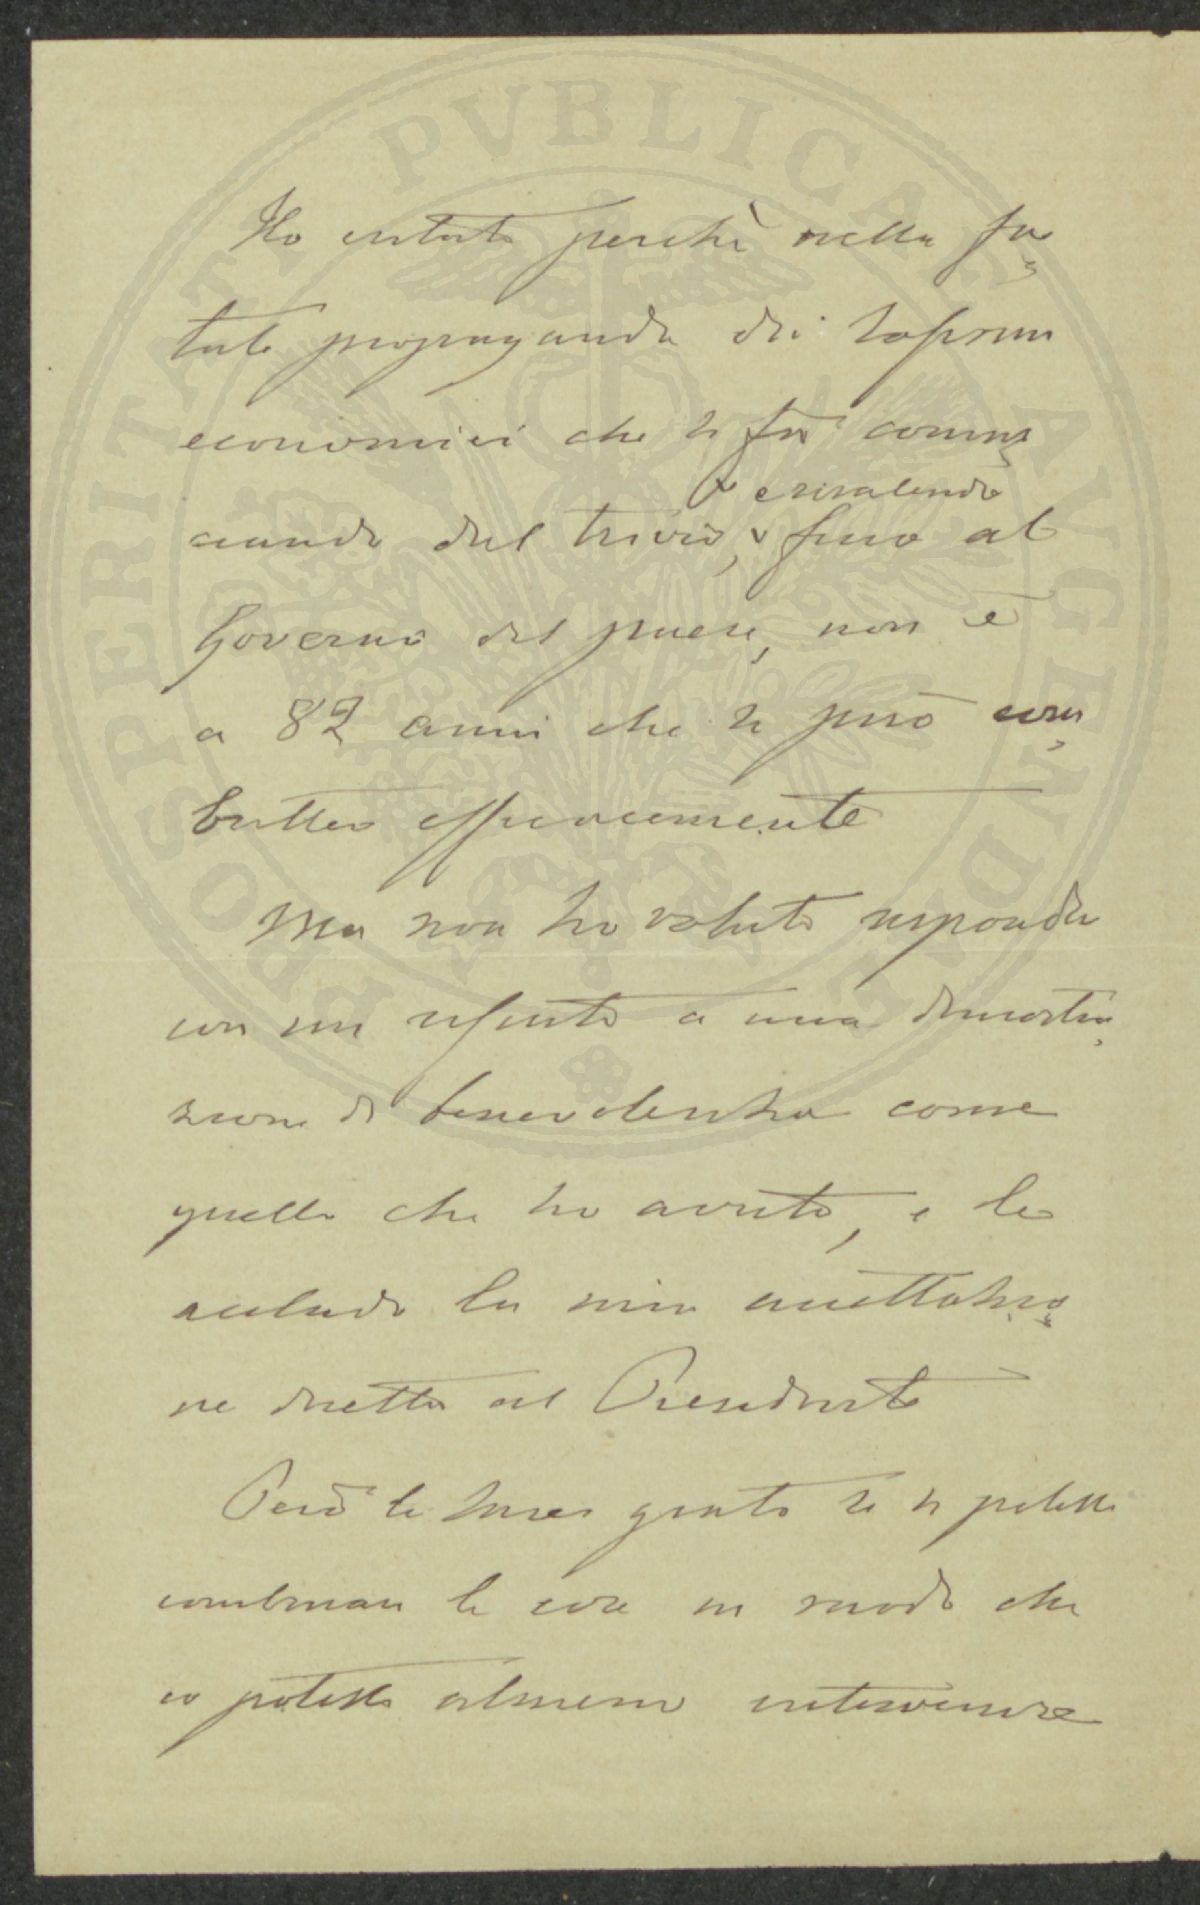 PROSPERITATI PVBLICAE AVGENDAE
Ho esitato perchè nella fu,
tata propaganda dei sofismi
economici che si fa comin,
e risalendo
ciando dal trivio, fino al
Governo del paese, non è
a 82 anni che si può com,
batter efficacemente
Ma non ho voluto risponder
con un rifiuto a una dimostra,
zione di benevolenza come
quella che ho avuto, e le
accludo la mia accettazio,
ne diretta al Presidente
Però le sarei grato se si potesse
combinare le cose in modo che
io potessi almeno intervenire